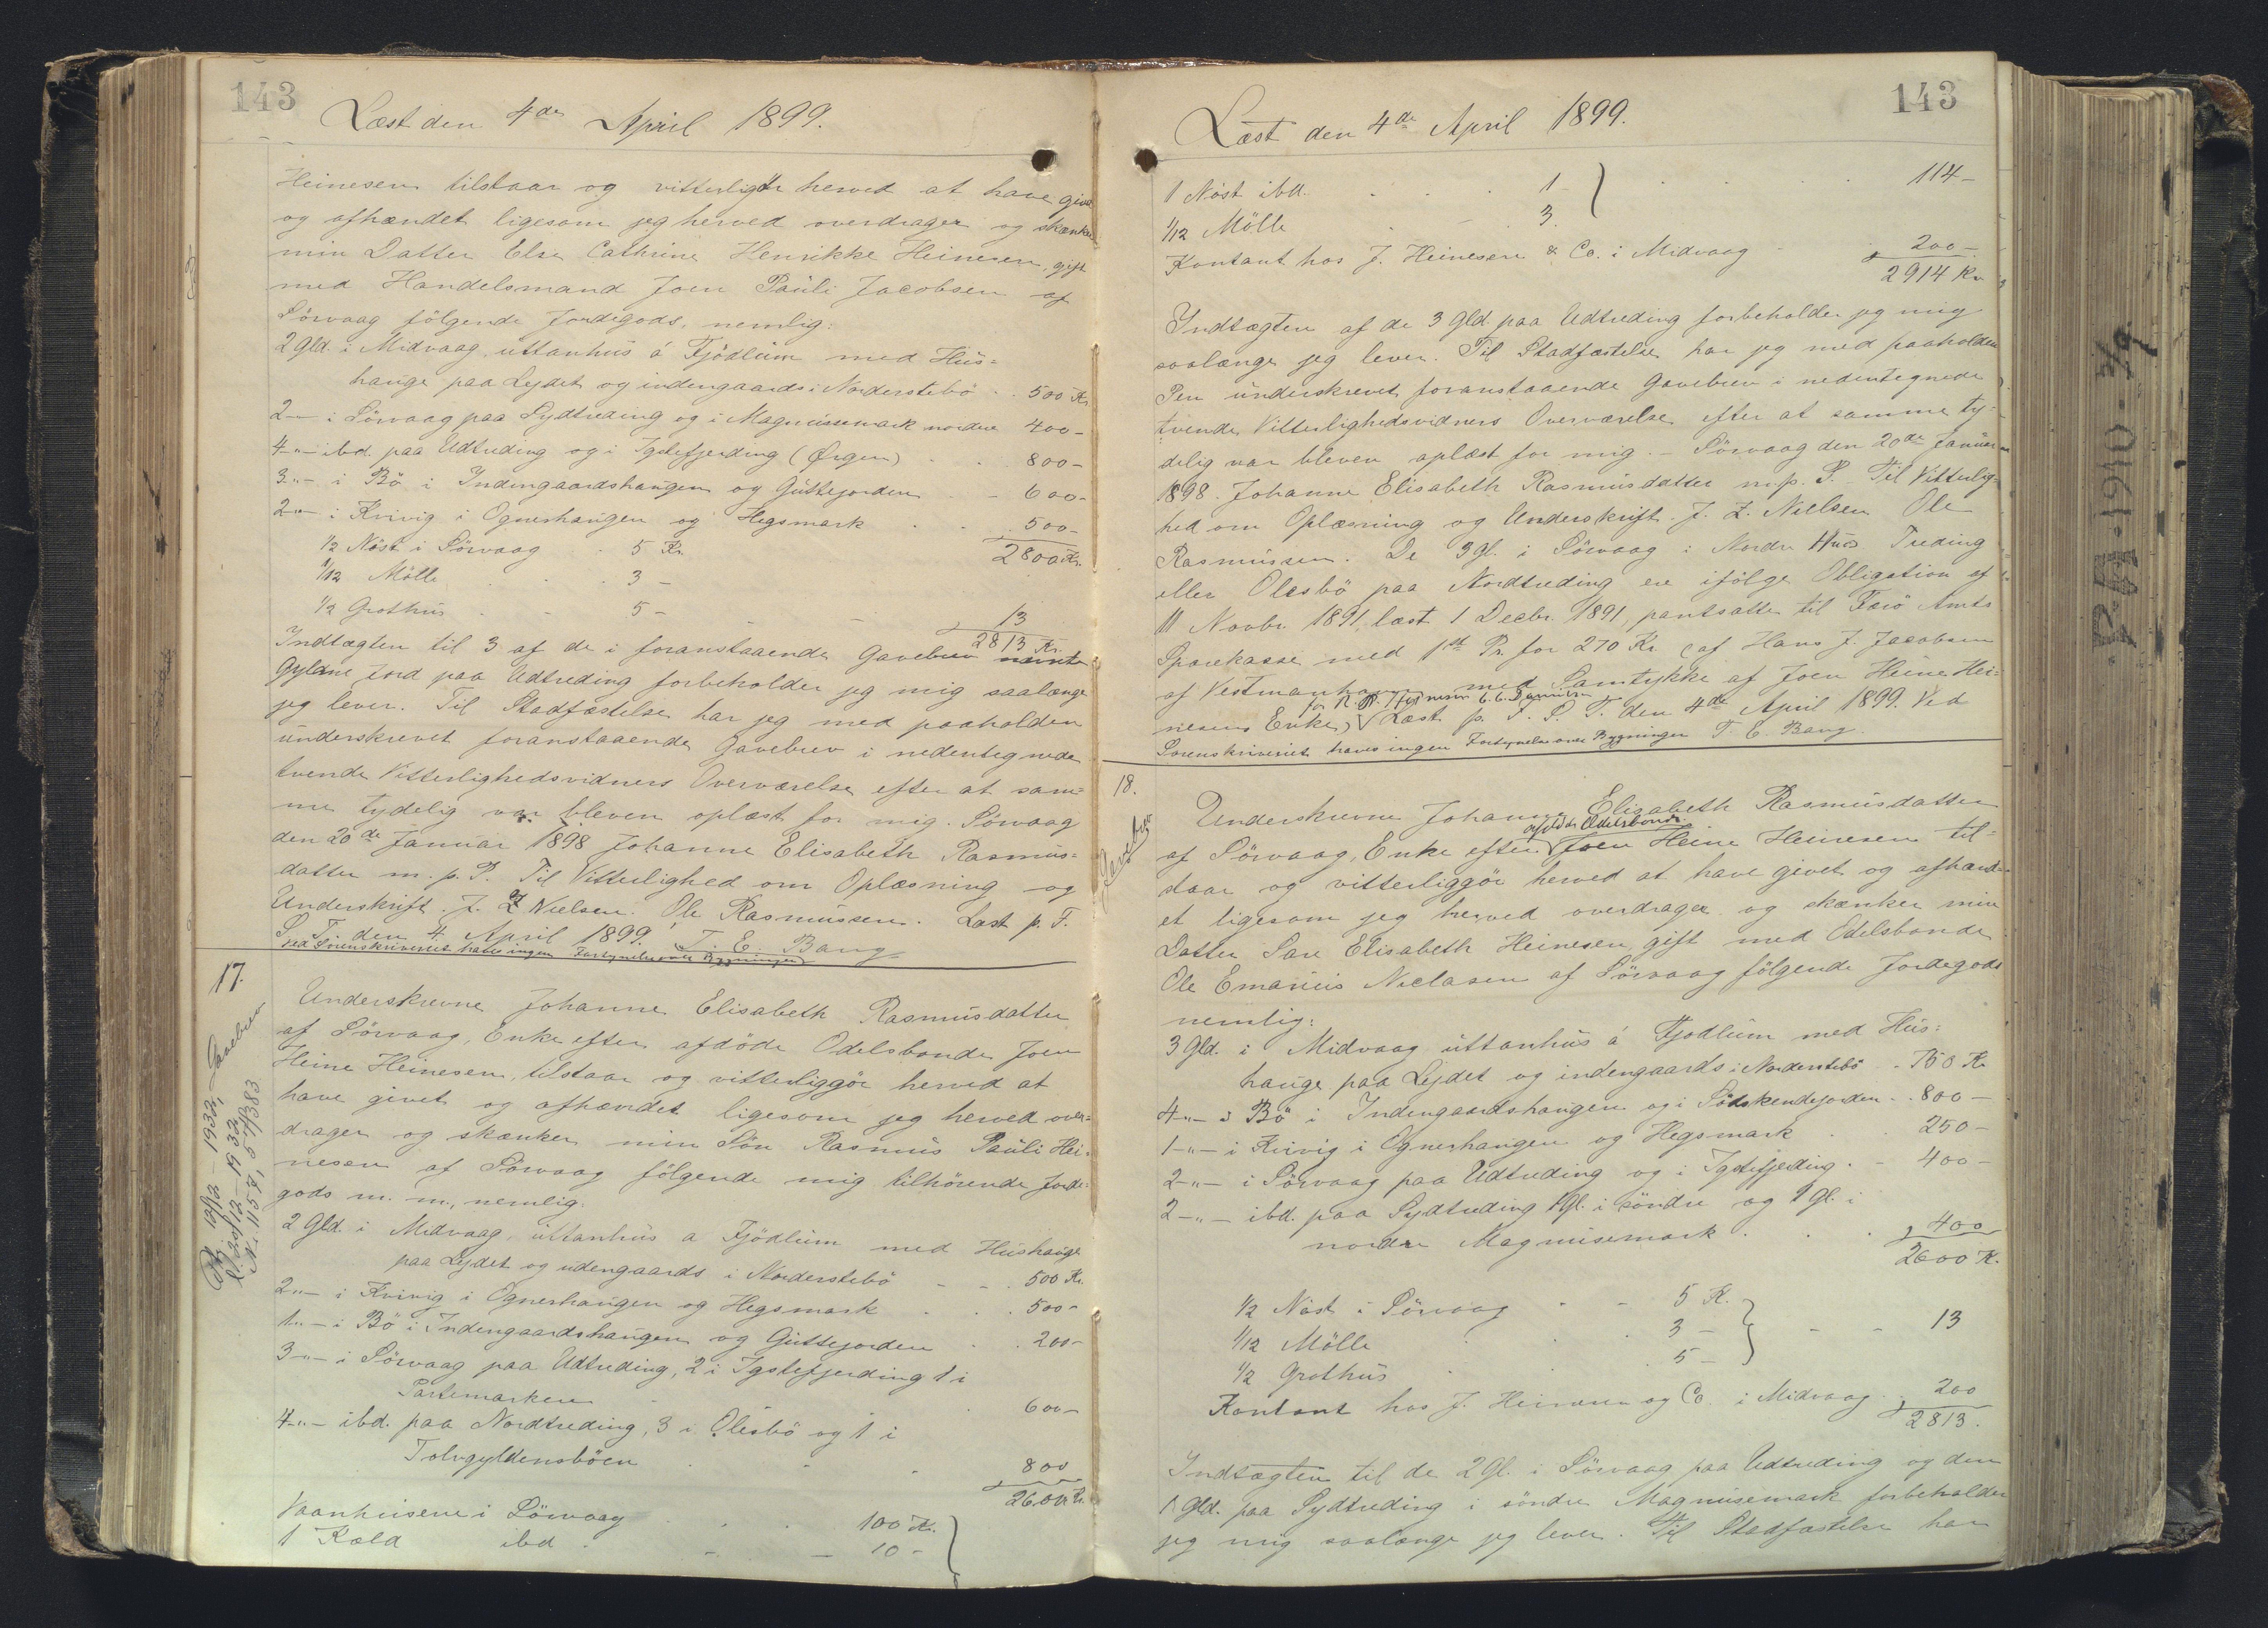 143
Læst den 4de April 1899.
Heinesen tilstaar og vitterligtr herved at have givet
og afhændet ligesom jeg herved overdrager og skænker
min Datter Else Cathrine Henrikke Heinesen, gift
med Handelsmand Joen Pauli Jacobsen af
Sörvaag følgende Jordegods, nemlig:
2 Gld. i Midvaag, uttanhus á Fjödlum med Hus-
hauge paa Lejdet og indengaards i Norderstebö . . 500 Kr
2 -"- i Sörvaag paa Sydtreding og i Magnusemark nordre 400 -
4 -"- ibd. paa Udtreding og i Ygstefjerding (Ørgen) . . 800 -
3 -"- i Bö i Indengaardshaugen og Guttejorden . - 600 -
2 -"- i Kvivig i Ognerhaugen og Hegsmark . . . 500 -
2800 Kr.
1/2 Nöst i Sörvaag . 5 Kr.
1/12 Mölle . . . 3 -
1/2 Grothus . - 5 - - - 13
2813 Kr.
Indtægten til 3 af de i foranstaaende Gavebrev nævnte
Gyldne Jord paa Udtreding forbeholder jeg mig saalænge
jeg lever. Til Stadfæstelse har jeg med paaholden
underskrevet foranstaaende Gavebrev i nedentegnede
tvende Vitterlighedsvidners Overværelse efter at sam-
me tydelig var bleven oplæst for mig. Sörvaag
den 20de Januar 1898 Johanne Elisabeth Rasmus-
datter m. p. P. Til Vitterlighed om Oplæsning og
Underskrift. J. Z Nielsen. Ole Rasmussen. Læst p. F.
S. T. den 4 April 1899. T. E. Bang
Ved Sorenskriveriet haves ingen Forsynelse over Bygninger
17.
Gavebrev
Underskrevne Johanne Elisabeth Rasmusdatter
af Sörvaag, Enke efter afdöde Odelsbonde Joen
Heine Heinesen, tilstaar og vitterliggör herved at
have givet og afhændet ligesom jeg herved over-
drager og skænker min Sön Rasmus Pauli Hei-
nesen af Sörvaag følgende mig tilhörende Jorde-
gods m. m., nemlig.
2 Gld. i Midvaag, uttanhus a Fjödlum med Hushauge
paa Lejdet og udengaards i Norderstebö - - . 500 Kr.
2 -"- i Kvivig i Ognerhaugen og Hegsmark . . . 500 -
1 -"- i Bö i Indengaardshaugen og Guttejorden . . 200 -
3 -"- i Sörvaag paa Udtreding, 2 i Ygstefjerding 1 i
Partemarken . . . 600 -
4 -"- ibd. paa Nordtreding, 3 i Olesbö og 1 i
Tolvgyldensböen . . . 800
2600 Kr.
Vaanhusene i Sörvaag . . . 100 Kr.
1 Kæld ibd . - - 10 -
143
Læst den 4de April 1899.
1 Nöst ibd. . . . 1 . . . . 114 -
1/12 Mölle . . 3.
Kontant hos J. Heinesen & Co. i Midvaag 200 -
2914 Kr
Indtægten af de 3 Gld paa Udtreding forbeholder jeg mig
saalænge jeg lever. Til Stadfæstelse har jeg med paaholden
Pen underskrevet foranstaaende Gavebrev i nedentegnede
tvende Vitterlighedsvidners Overværelse efter at samme ty-
delig var bleven oplæst for mig. - Sörvaag den 20de Januar
1898. Johanne Elisabeth Rasmusdatter m. p. P. - Til Vitterlig-
hed om Oplæsning og Underskrift. J. Z. Nielsen Ole
Rasmussen. De 3 Gl. i Sörvaag i Nordre Hus Treding
eller Olesbö paa Nordtreding ere ifölge Obligation af
11 Novbr. 1891, læst 1 Decbr. 1891, pantsatte til Færö Amts
Sparekasse med 1ste Pr. for 270 Kr (af Hans J. Jacobsen
af Vestmanhavn med Samtykke af Joen Heine Hei-
nesens Enke) Læst p. F. S. T. den 4de April 1899. Ved
Sorenskriveriet haves ingen Forsynelse over Bygninger T. E. Bang.
18.
Gavebrev
Underskrevne Johanne Elisabeth Rasmusdatter
af Sörvaag, Enke efter afdöde Odelsbonde Joen Heine Heinesen til-
staar og vitterliggör herved at have givet og afhænd-
et ligesom jeg herved overdrager og skænker min
Datter Sare Elisabeth Heinesen, gift med Odelsbonde
Ole Emanuis Niclasen af Sörvaag følgende Jordegods
nemlig:
3 Gld. i Midvaag uttanhus á Fjodlum med Hus-
hauge paa Lejdet og indengaards i Norderstebö . . 750 Kr
4 -"- i Bö i Indengaardshaugen og i Södskendejorden . . 800 -
1 -"- i Kvivig i Ognerhaugen og Hegsmark . . 250 -
2 -"- i Sörvaag paa Udtreding og i Ygstefjerding . - 400 -
2 -"- ibd. paa Sydtreding 1 Gl. i söndre og 1 Gl. i
nordre Magnusemark . . . 400
2600 K.
1/2 Nöst i Sörvaag - - 5 K.
1/12 Mölle . . . 3 - - - 13
1/2 Grothus . . 5 -
Kontant hos J. Heinesen og Co. i Midvaag . . 200
2813.
Indtægten til de 2 Gl. i Sörvaag paa Udtreding og den
1 Gld. paa Sydtreding i söndre Magnusemark forbeholder
jeg mig saalænge jeg lever. Til Stadfæstelse har